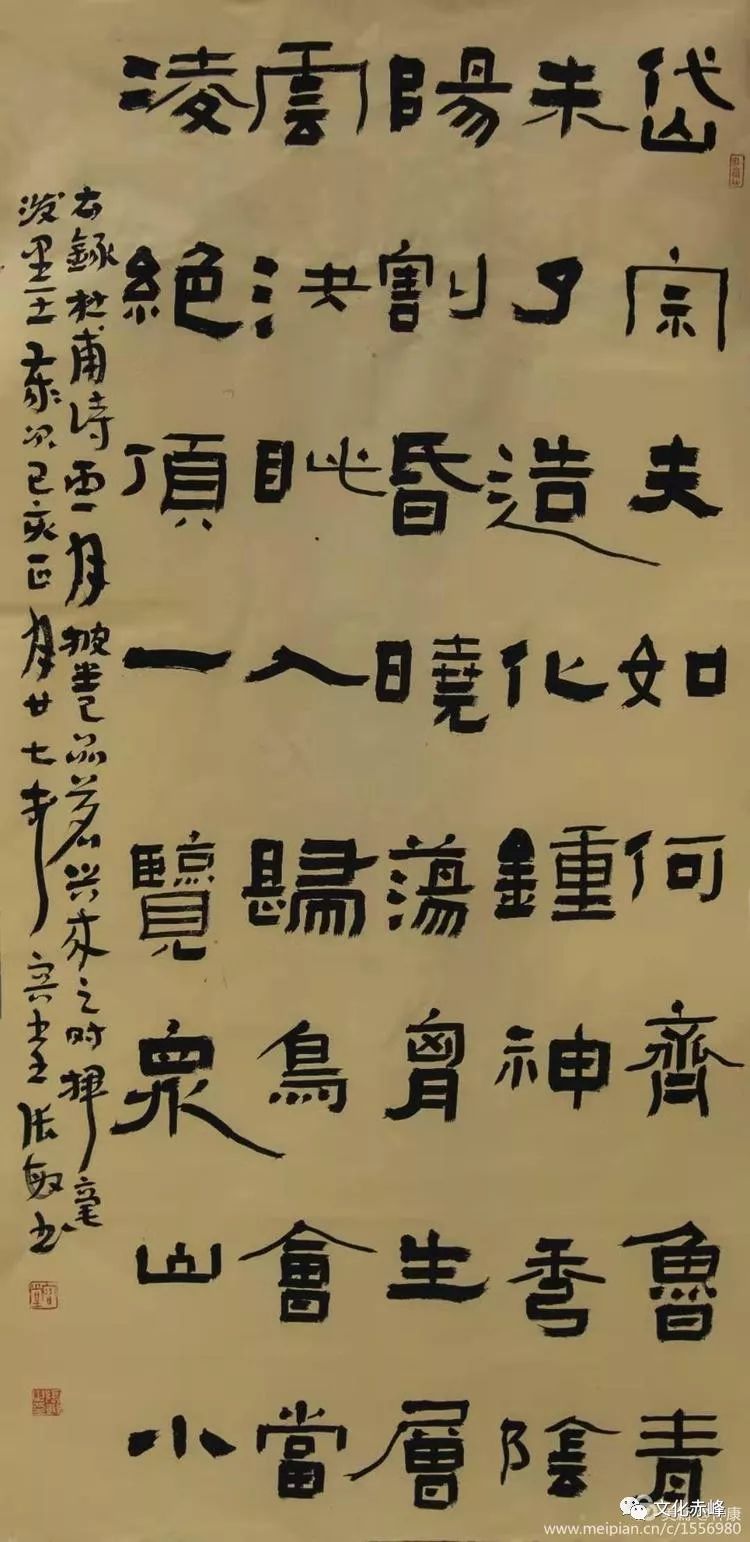 岱宗夫如何齊魯青
未了造化鍾神秀陰
陽割昏曉蕩胷生層
雲決眦入歸鳥會當
凌絕頂一覽眾山小
右錄杜甫詩 月披卷品茗兴来之时揮毫
泼墨 歲次己亥正月廿七 張敏书
文化赤峰
www.meipian.cn/c/1556980